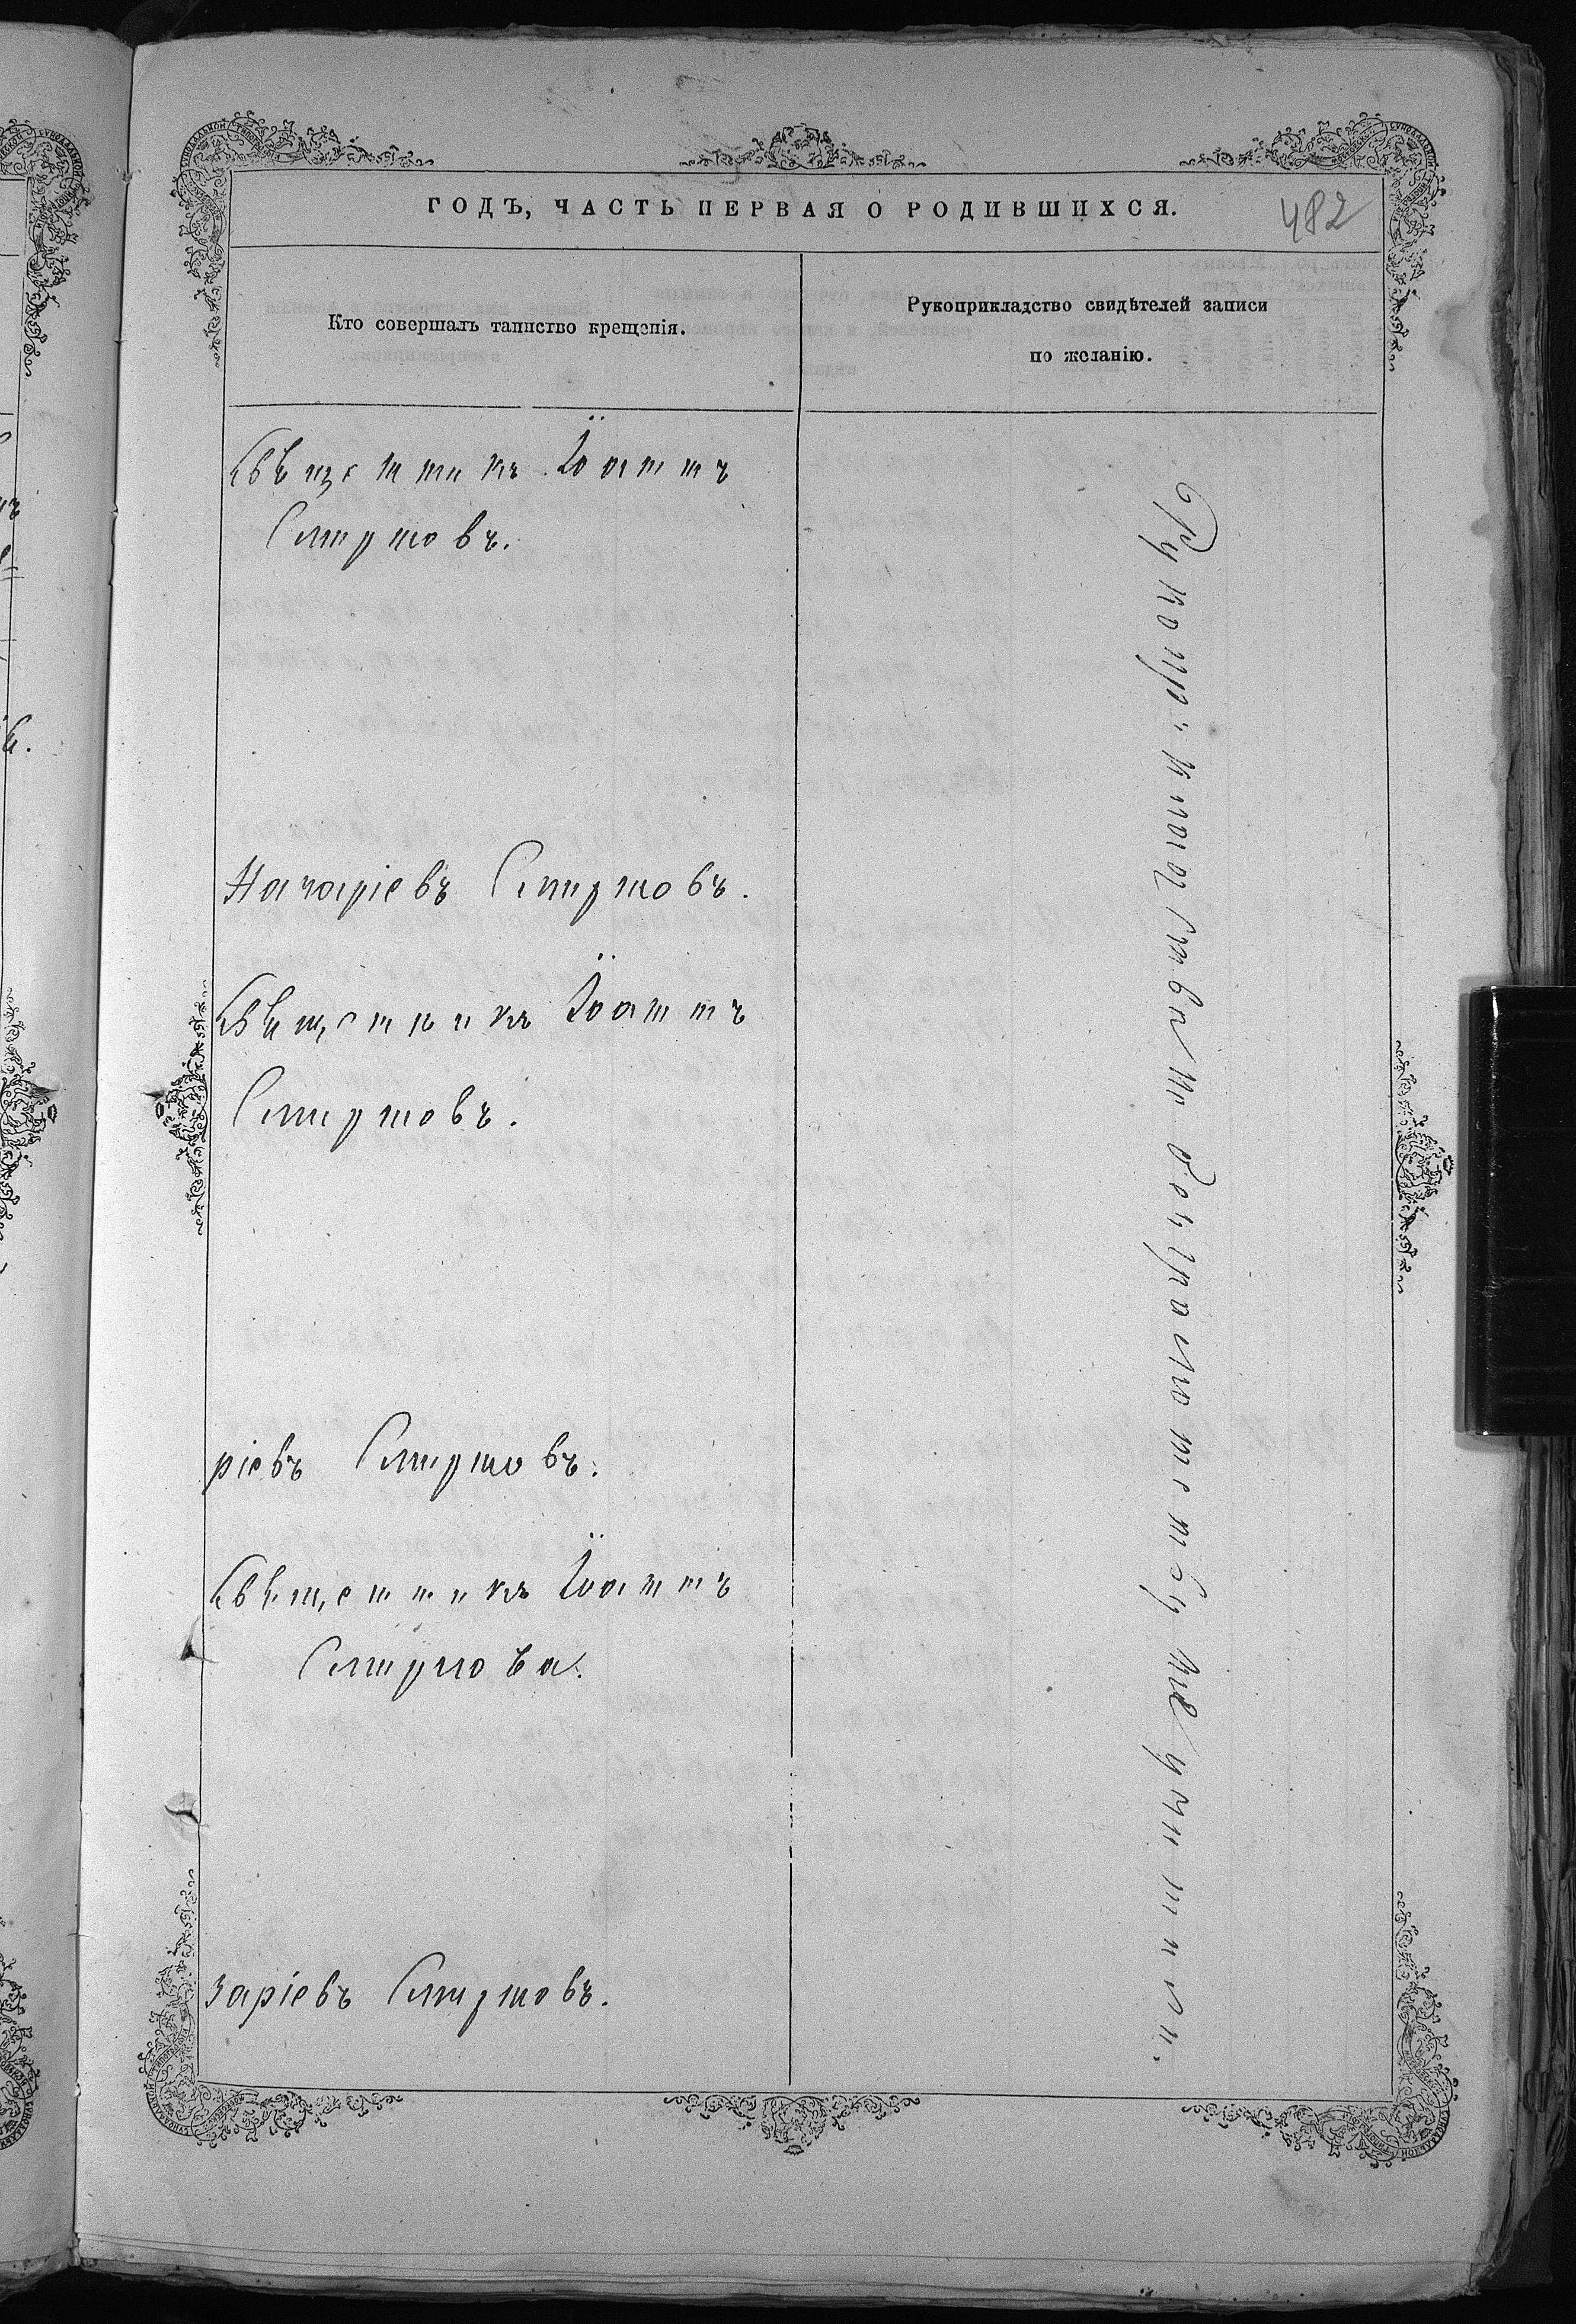 ГОДЪ, ЧАСТЬ ПЕРВАЯ О РОДИВШИХСЯ.
482
Кто совершалъ таинство крещенія.
Рукоприкладство свидѣтелей записи
по желанію.
Священникъ Іоаннъ
Смирновъ.
Назаріевъ Смирновъ.
Священникъ Іоаннъ
Смирновъ.
ріевъ Смирновъ.
Священникъ Іоаннъ
Смирновъ.
заріевъ Смирновъ.
Рукоприкладства по безграмотству не учинили.